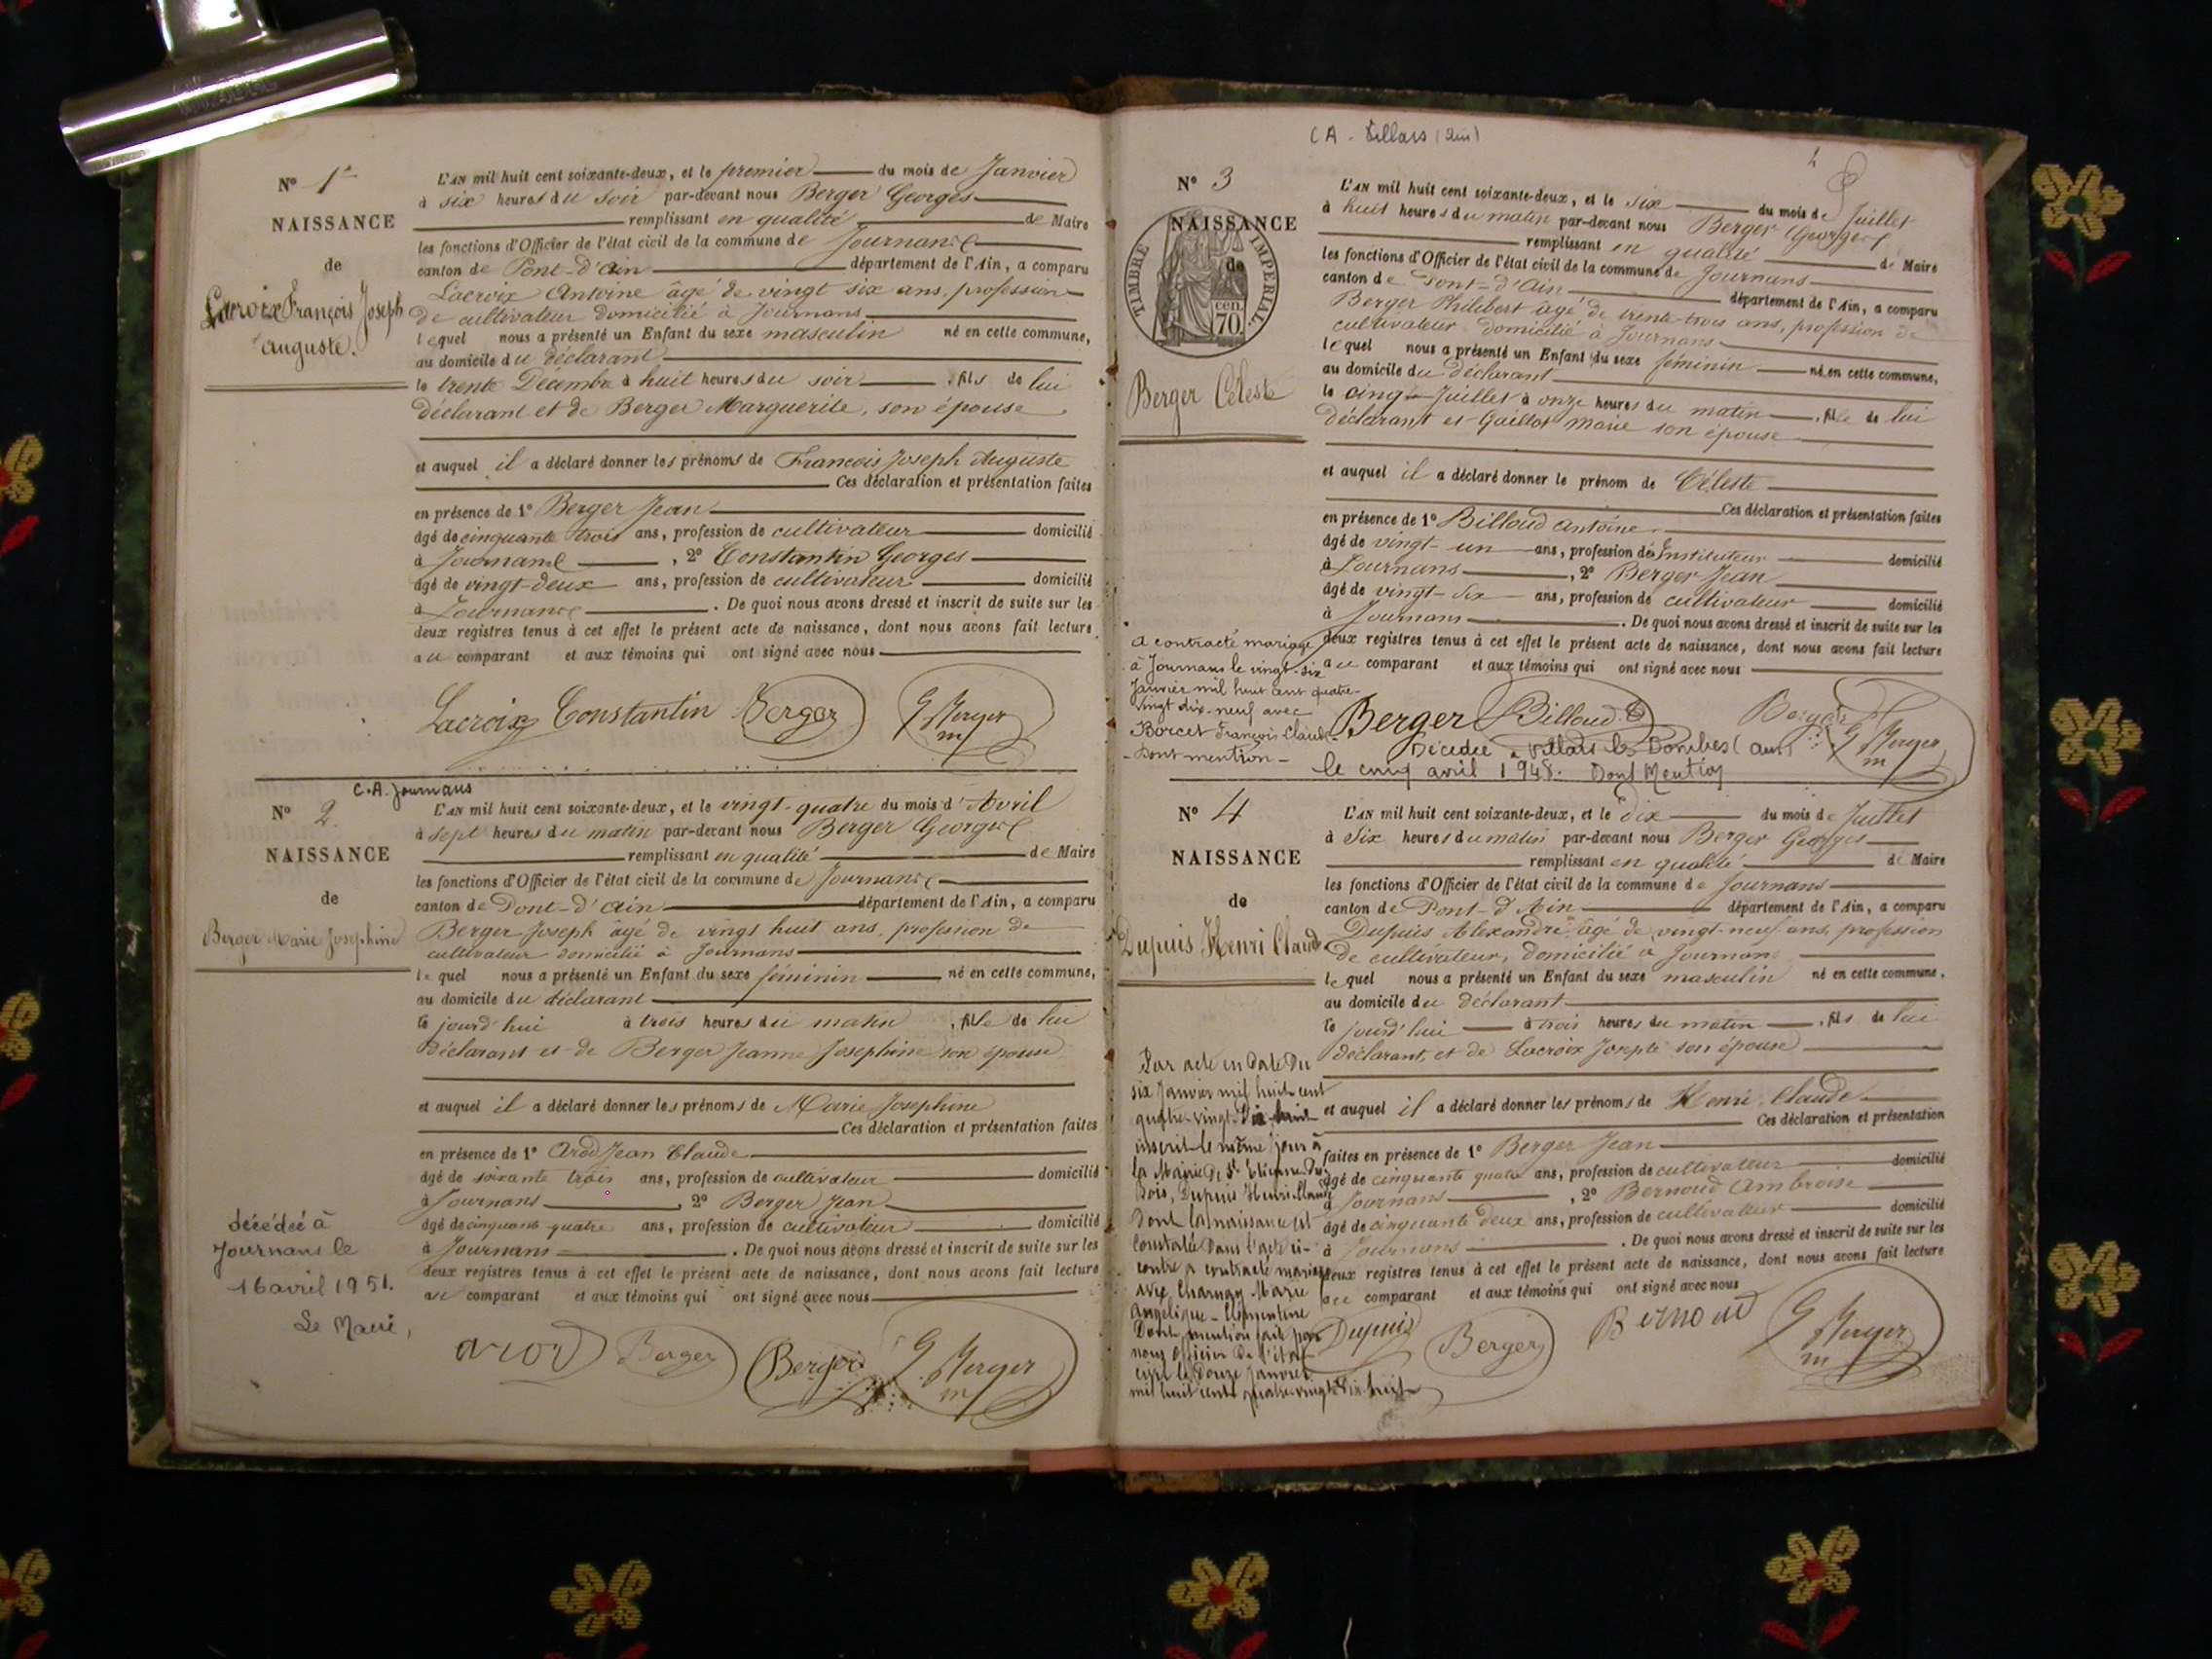 N° 1er
NAISSANCE
de
Lacroix François Joseph
Auguste.
L'AN mil huit cent soixante-deux, et le premier du mois de Janvier
à six heures du soir par-devant nous Berger Georges
remplissant en qualité de Maire
les fonctions d'Officier de l'état civil de la commune de Journans
canton de Pont-d'Ain département de l'Ain, a comparu
Lacroix Antoine âgé de vingt six ans, profession
de cultivateur domicilié à Journans
lequel nous a présenté un Enfant du sexe masculin né en cette commune,
au domicile du déclarant
le trente Décembre à huit heures du soir , fils de lui
déclarant et de Berger Marguerite, son épouse
et auquel il a déclaré donner les prénoms de François Joseph Auguste
Ces déclaration et présentation faites
en présence de 1° Berger Jean
âgé de cinquante trois ans, profession de cultivateur domicilié
à Journans , 2° Constantin Georges
âgé de vingt-deux ans, profession de cultivateur domicilié
à Journans . De quoi nous avons dressé et inscrit de suite sur les
deux registres tenus à cet effet le présent acte de naissance, dont nous avons fait lecture
au comparant et aux témoins qui ont signé avec nous
Lacroix Constantin Berger G Berger
m
C.A. Journans
N° 2
NAISSANCE
de
Berger Marie Josephine
L'AN mil huit cent soixante-deux, et le vingt-quatre du mois d'Avril
à sept heures du matin par-devant nous Berger Georges
remplissant en qualité de Maire
les fonctions d'Officier de l'état civil de la commune de Journans
canton de Pont-d'Ain département de l'Ain, a comparu
Berger Joseph âgé de vingt huit ans, profession de
cultivateur domicilié à Journans
lequel nous a présenté un Enfant du sexe féminin né en cette commune,
au domicile du déclarant
le jourd'hui à trois heures du matin , fille de lui
déclarant et de Berger Jeanne Josephine son épouse
et auquel il a déclaré donner les prénoms de Marie Josephine
Ces déclaration et présentation faites
en présence de 1° Arod Jean Claude
âgé de soixante trois ans, profession de cultivateur domicilié
à Journans , 2° Berger Jean
âgé de cinquante quatre ans, profession de cultivateur domicilié
à Journans . De quoi nous avons dressé et inscrit de suite sur les
deux registres tenus à cet effet le présent acte de naissance, dont nous avons fait lecture
au comparant et aux témoins qui ont signé avec nous
décédée à
Journans le
16 avril 1951.
Le Maire,
arod Berger Berger G Berger
m
CA - Villars (Ain)
N° 3
NAISSANCE
de
TIMBRE IMPERIAL.
70 cen
Berger Céleste
L'AN mil huit cent soixante-deux, et le six du mois de Juillet
à huit heures du matin par-devant nous Berger Georges
remplissant en qualité de Maire
les fonctions d'Officier de l'état civil de la commune de Journans
canton de Pont-d'Ain département de l'Ain, a comparu
Berger Philibert âgé de trente-trois ans, profession de
cultivateur domicilié à Journans
lequel nous a présenté un Enfant du sexe féminin né en cette commune,
au domicile du déclarant
le cinq Juillet à onze heures du matin , fille de lui
déclarant et Guillot Marie son épouse
et auquel il a déclaré donner le prénom de Céleste
Ces déclaration et présentation faites
en présence de 1° Billoud Antoine
âgé de vingt-un ans, profession d'Instituteur domicilié
à Journans , 2° Berger Jean
âgé de vingt-six ans, profession de cultivateur domicilié
à Journans . De quoi nous avons dressé et inscrit de suite sur les
deux registres tenus à cet effet le présent acte de naissance, dont nous avons fait lecture
au comparant et aux témoins qui ont signé avec nous
A contracté mariage
à Journans le vingt-six
Janvier mil huit cent quatre-
vingt dix-neuf avec
Borcet François Claude
- Dont mention -
Berger Billoud Berger G Berger
m
Décédée à Villars les Dombes (Ain)
le cinq avril 1948. Dont Mention
N° 4
NAISSANCE
de
Dupuis Henri Claude
L'AN mil huit cent soixante-deux, et le dix du mois de Juillet
à six heures du matin par-devant nous Berger Georges
remplissant en qualité de Maire
les fonctions d'Officier de l'état civil de la commune de Journans
canton de Pont-d'Ain département de l'Ain, a comparu
Dupuis Alexandre âgé de vingt-neuf ans, profession
de cultivateur, domicilié à Journans
lequel nous a présenté un Enfant du sexe masculin né en cette commune,
au domicile du déclarant
le jourd'hui à trois heures du matin , fils de lui
déclarant, et de Lacroix Josepte son épouse
et auquel il a déclaré donner les prénoms de Henri Claude
Ces déclaration et présentation
faites en présence de 1° Berger Jean
âgé de cinquante quatre ans, profession de cultivateur domicilié
à Journans , 2° Bernoud Ambroise
âgé de cinquante deux ans, profession de cultivateur domicilié
à Journans . De quoi nous avons dressé et inscrit de suite sur les
deux registres tenus à cet effet le présent acte de naissance, dont nous avons fait lecture
au comparant et aux témoins qui ont signé avec nous
Par acte en date du
six Janvier mil huit cent
quatre-vingt-dix-huit
inscrit le même jour à
la Mairie de St Etienne du
Bois, Dupuis Henri Claude
dont la naissance est
constatée dans l'acte ci-
contre a contracté mariage
avec Charngy Marie
Angelique-Clementine
Dont mention faite par
nous officier de l'état
civil le douze Janvier
mil huit cent quatre-vingt dix huit
Dupuis Berger Bernoud G Berger
m